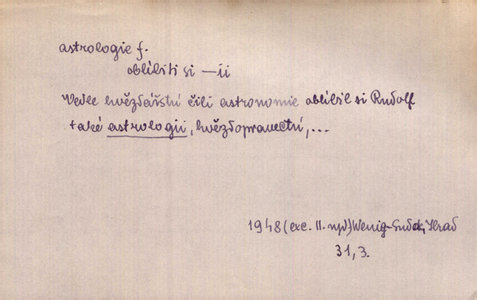 astrologie f.
oblíbiti si —ii
Vedle hvězdářství čili astronomie oblíbil si Rudolf
také astrologii, hvězdopravectví, ...
1948 (exc. II. vyd) Wenig- Hrad
31, 3.